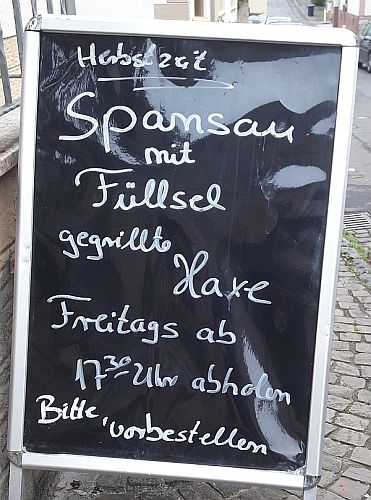 Herbstzeit
Spansau
mit
Füllsel
gegrillte
Haxe
Freitags ab
17³⁰ Uhr abholen
Bitte
vorbestellen